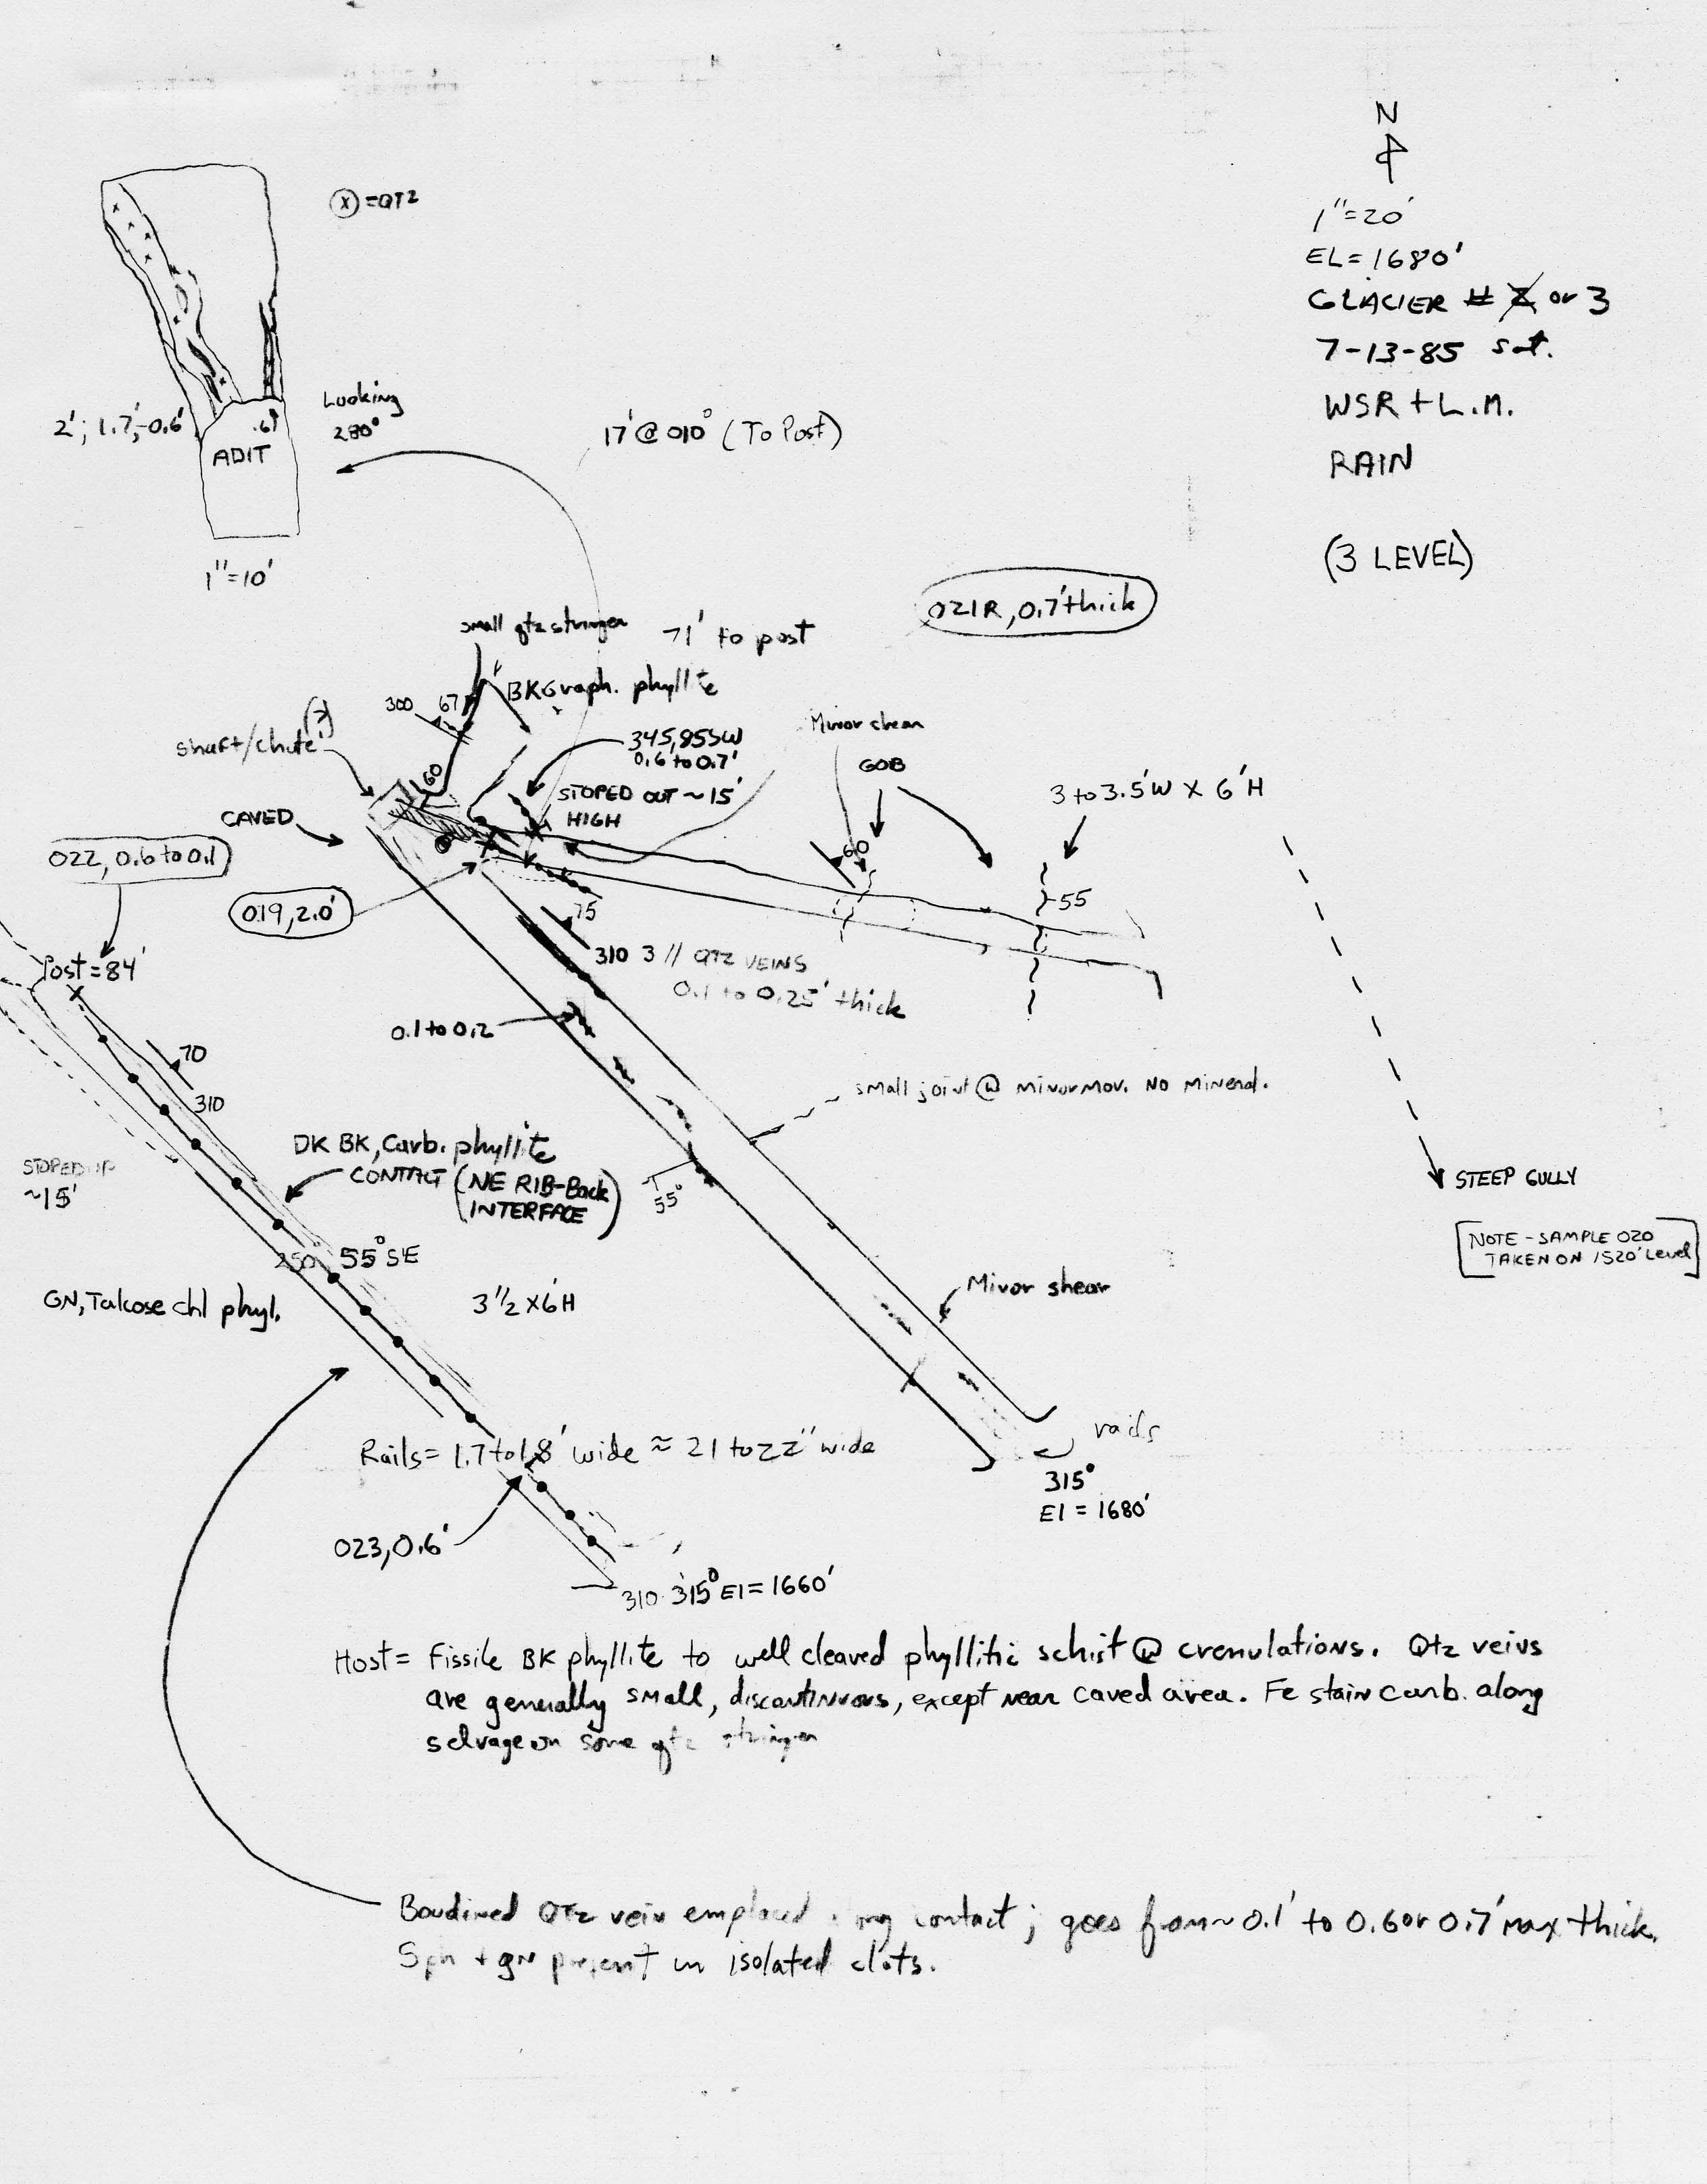 N
1"=20'
EL=1680'
GLACIER # 2 or 3
7-13-85 sat.
WSR + L.M.
RAIN
(3 LEVEL)
X =QTZ
Looking
280°
2'; 1.7'-0.6'
.6'
ADIT
1"=10'
17' @ 010° (To Post)
021R, 0.7' thick
small qtz stringer
71' to post
BK Graph. phyllite
300 67
shaft/chute (?)
60
345, 85SW
0.6' to 0.7'
STOPED OUT ~15'
HIGH
Minor shear
GOB
3 to 3.5'W X 6'H
CAVED
60
55
022, 0.6 to 0.1
019, 2.0'
75
310 3 // QTZ VEINS
0.1 to 0.25' thick
Post=84'
0.1 to 0.2
70
310
small joint @ minor mov. NO Mineral.
DK BK, Carb. phyllite
CONTACT (NE RIB-Back
INTERFACE)
STOPED UP
~15'
55°
STEEP GULLY
[NOTE - SAMPLE 020
TAKEN ON 1520' Level]
250° 55° SE
GN, Talcose chl phyl.
3 1/2 X 6'H
Minor shear
Rails= 1.7 to 1.8' wide ≈ 21 to 22" wide
rails
315°
El = 1680'
023, 0.6'
310 315° El = 1660'
Host= Fissile BK phyllite to well cleaved phyllitic schist @ crenulations. Qtz veins
are generally small, discontinuous, except near caved area. Fe stain carb. along
selvage on some qtz stringer
Boudined QTZ vein emplaced contact; goes from ~0.1' to 0.6 or 0.7' max thick.
Sph + gn present in isolated clots.